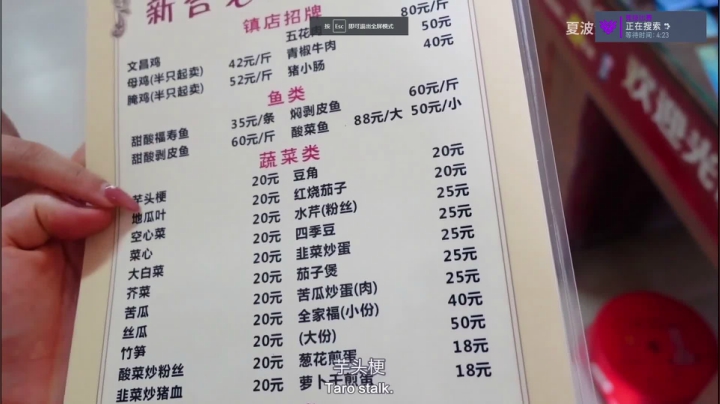 新合
镇店招牌
文昌鸡 五花肉 80元/斤
母鸡(半只起卖) 42元/斤 青椒牛肉 50元
腌鸡(半只起卖) 52元/斤 猪小肠 40元
鱼类
甜酸福寿鱼 35元/条 焖剥皮鱼 60元/斤
甜酸剥皮鱼 60元/斤 酸菜鱼 88元/大 50元/小
蔬菜类
芋头梗 20元 豆角 20元
地瓜叶 20元 红烧茄子 20元
空心菜 20元 水芹(粉丝) 25元
菜心 20元 四季豆 25元
大白菜 20元 韭菜炒蛋 25元
芥菜 20元 茄子煲 25元
苦瓜 20元 苦瓜炒蛋(肉) 25元
丝瓜 20元 全家福(小份) 40元
竹笋 20元 (大份) 50元
酸菜炒粉丝 20元 葱花煎蛋 18元
韭菜炒猪血 20元 萝卜干煎蛋 18元
按 Esc 即可退出全屏模式
夏波
正在搜索
等待时间: 4:23
欢迎光
芋头梗
Taro stalk.